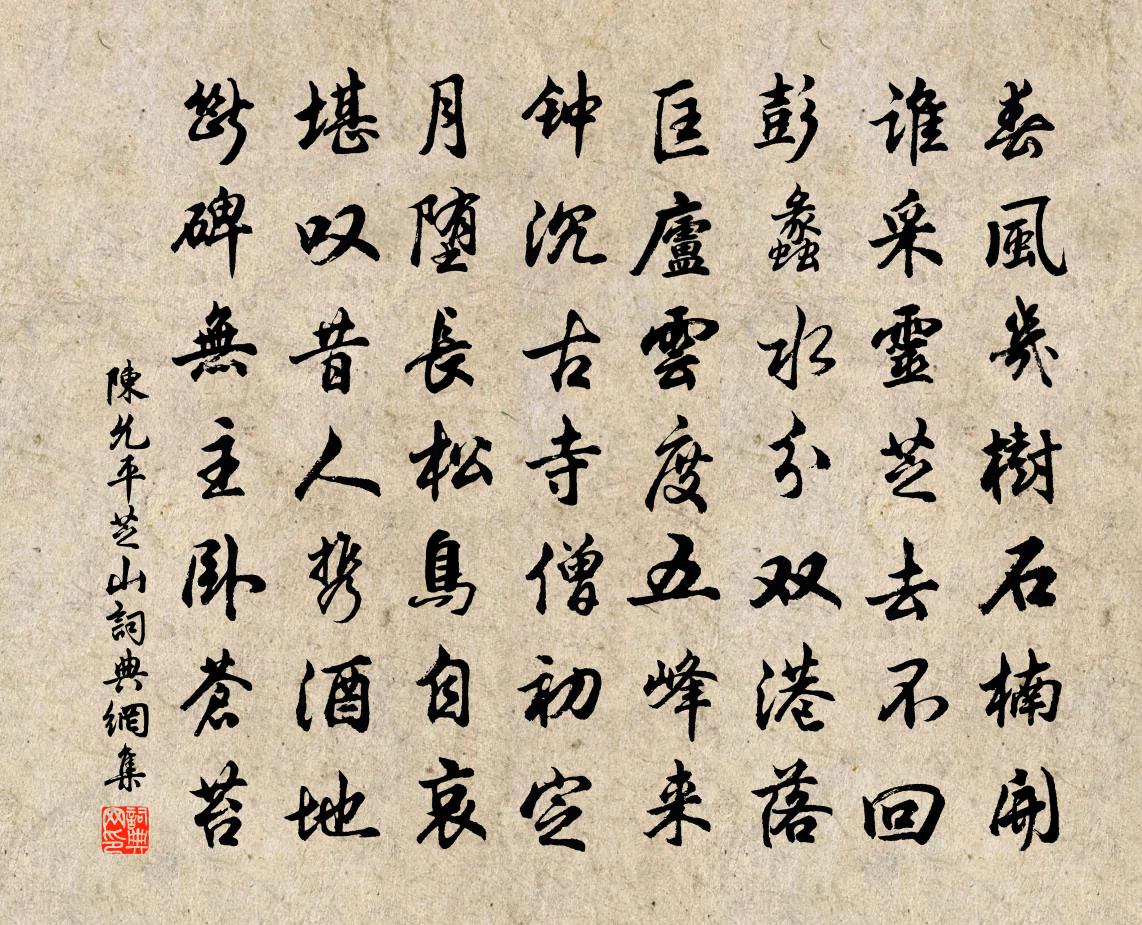 春風幾樹石楠開
谁采靈芝去不回
彭蠡水分双港落
匡廬雲度五峰来
钟沉古寺僧初定
月堕長松鳥自哀
堪叹昔人携酒地
断碑無主卧蒼苔
陳允平芝山詞典網集
詞典网印